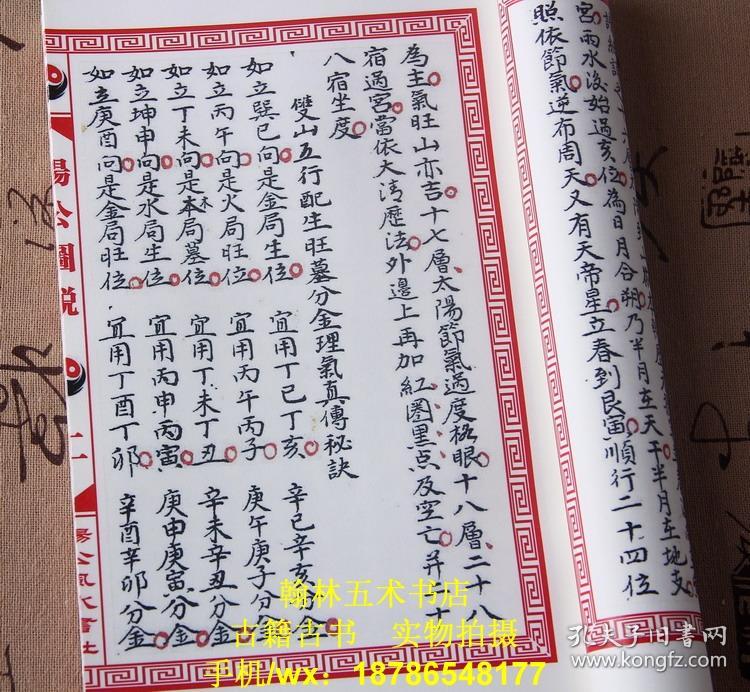 宮雨水後始過亥位為日月合朔乃半月在天干半月在地支
照依節氣逆布周天又有天帝星立春到艮寅順行二十四位
為主氣旺山亦吉十七層太陽節氣過度格眼十八層二十八
宿過宮當依大清歷法外邊上再加紅圈黑点及空亡并
八宿坐度
雙山五行配生旺墓分金理氣真傳秘訣
如立巽巳向是金局生位 宜用丁巳丁亥 辛巳辛亥分金
如立丙午向是火局旺位 宜用丙午丙子 庚午庚子分金
如立丁未向是木局墓位 宜用丁未丁丑 辛未辛丑分金
如立坤申向是水局生位 宜用丙申丙寅 庚申庚寅分金
如立庚酉向是金局旺位 宜用丁酉丁卯 辛酉辛卯分金
楊公圖說
二
翰林五术书店
古籍古书 实物拍摄
手机/wx：18786548177
孔夫子旧书网
www.kongfz.com